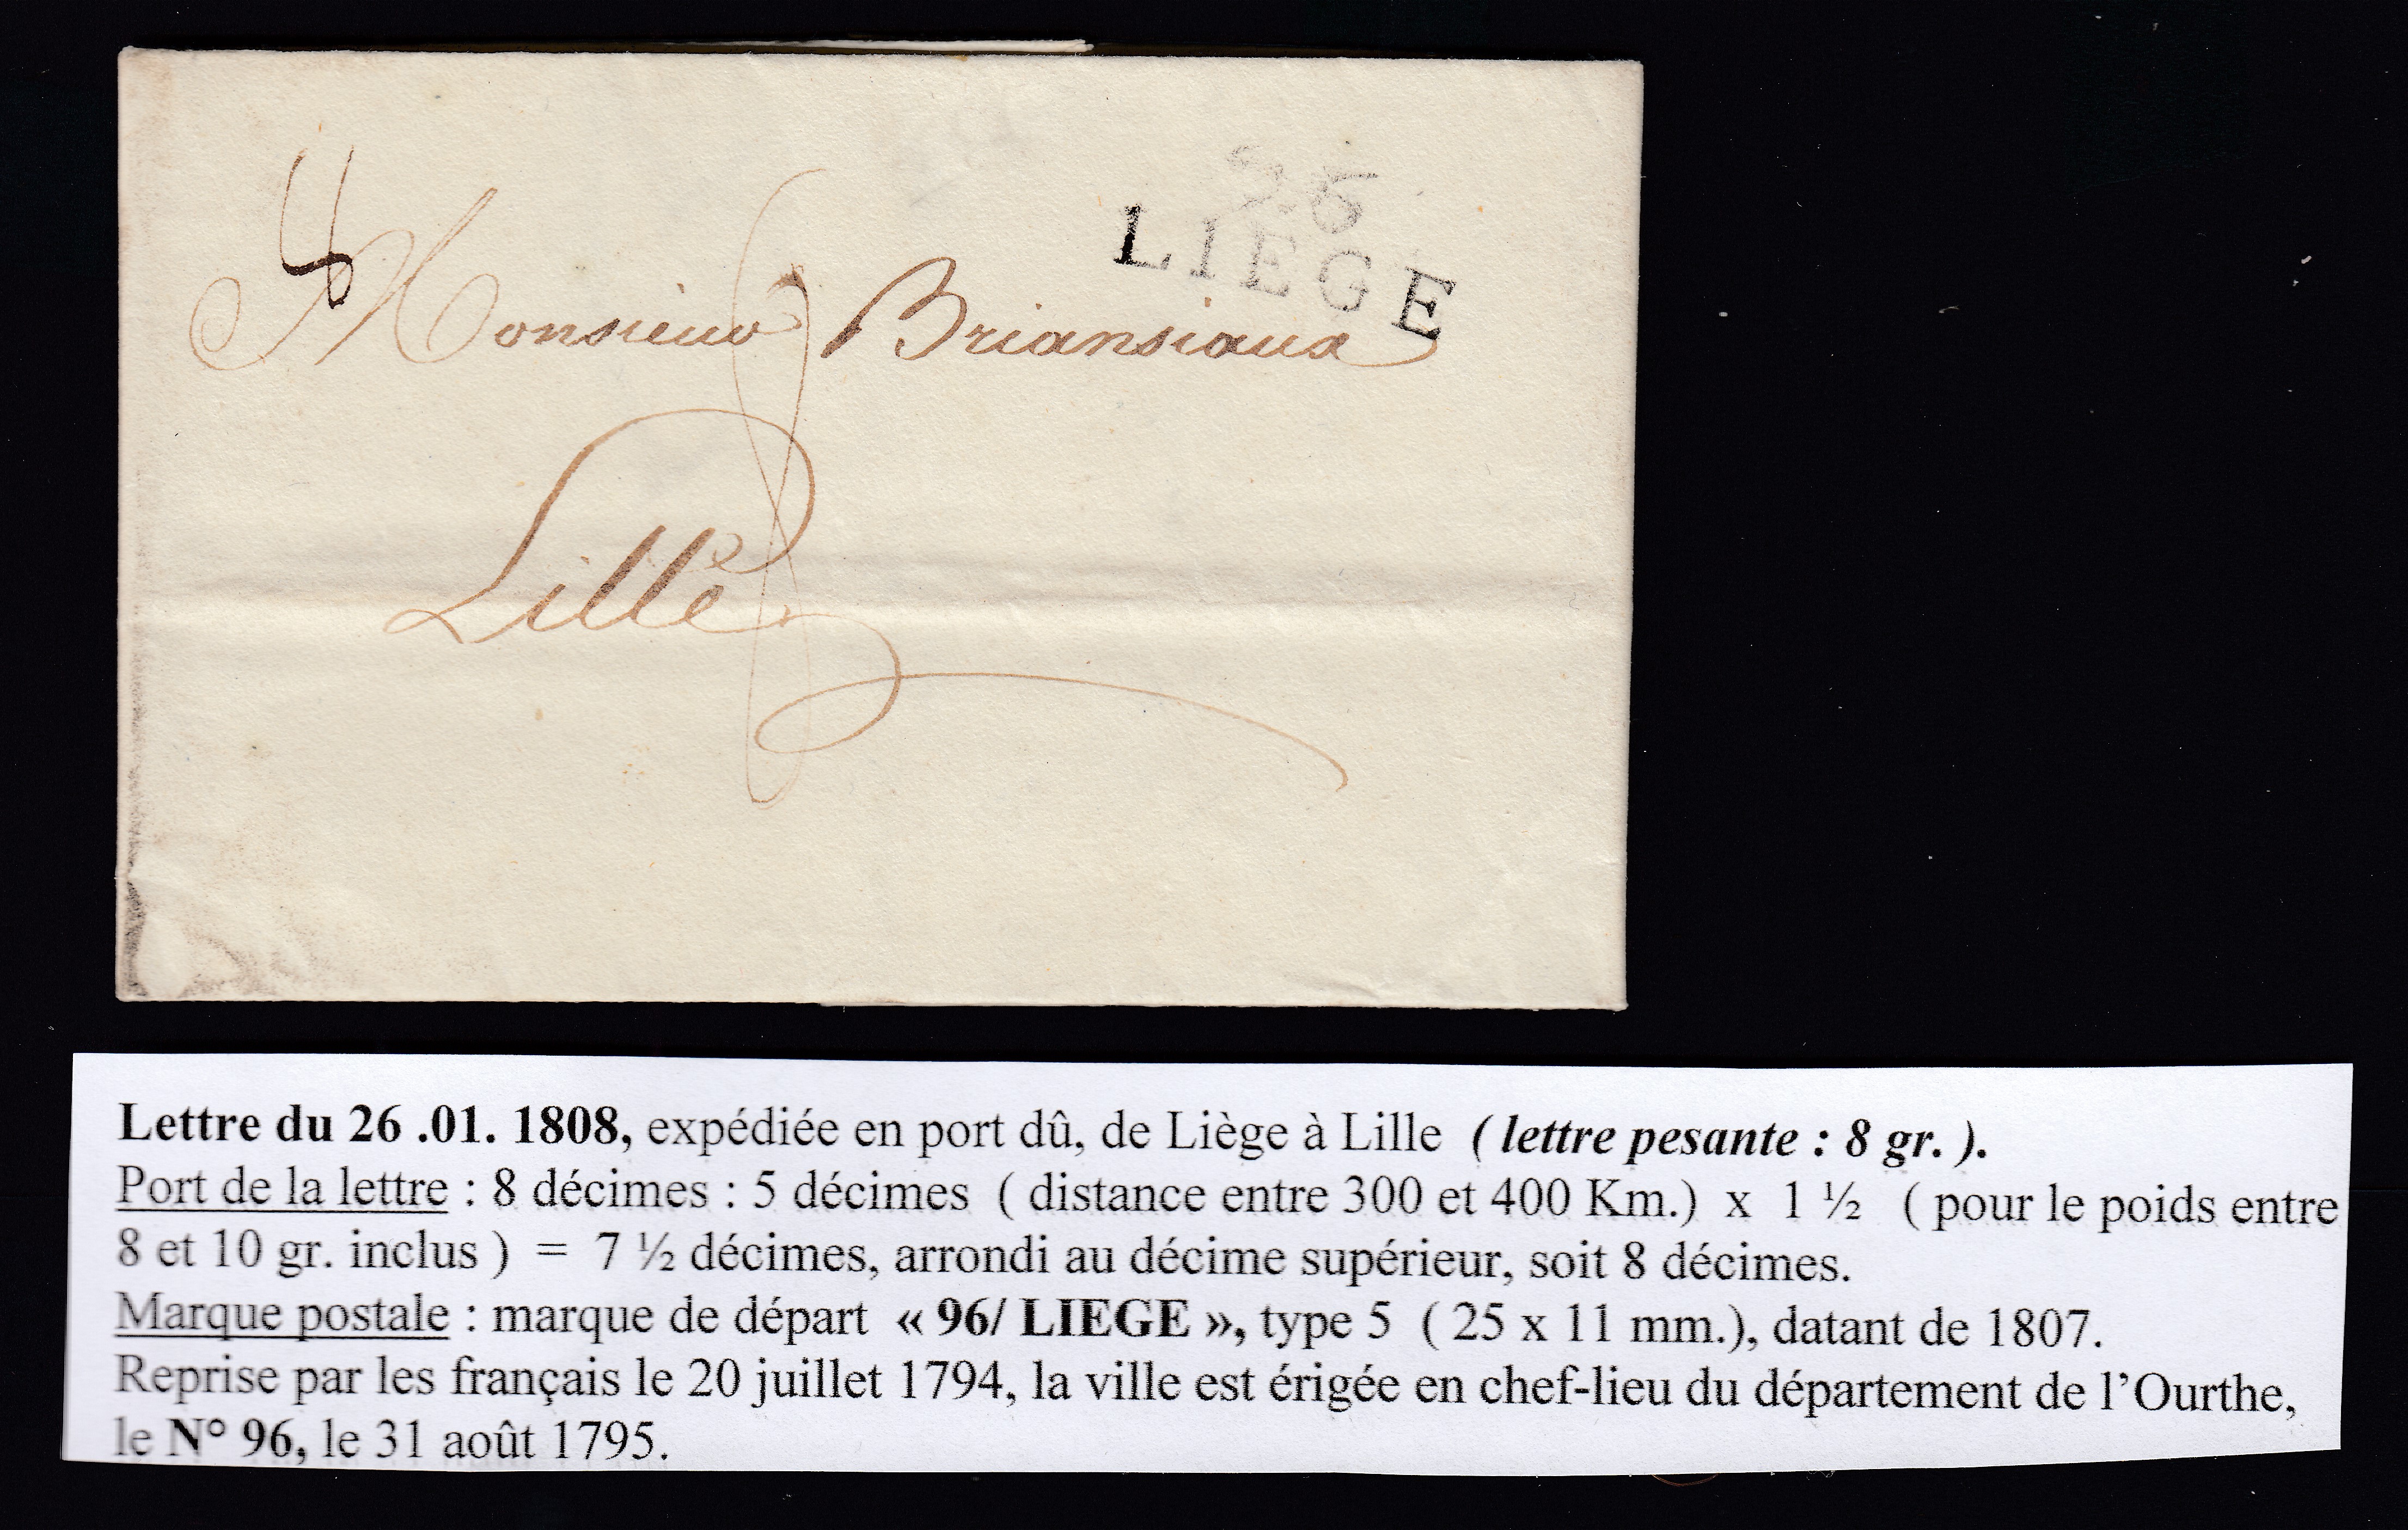 96
LIEGE
8
Monsieur Briansiaux
8
Lille
Lettre du 26 .01. 1808, expédiée en port dû, de Liège à Lille ( lettre pesante : 8 gr. ).
Port de la lettre : 8 décimes : 5 décimes ( distance entre 300 et 400 Km.) x 1 ½ ( pour le poids entre
8 et 10 gr. inclus ) = 7 ½ décimes, arrondi au décime supérieur, soit 8 décimes.
Marque postale : marque de départ « 96/ LIEGE », type 5 ( 25 x 11 mm.), datant de 1807.
Reprise par les français le 20 juillet 1794, la ville est érigée en chef-lieu du département de l’Ourthe,
le N° 96, le 31 août 1795.